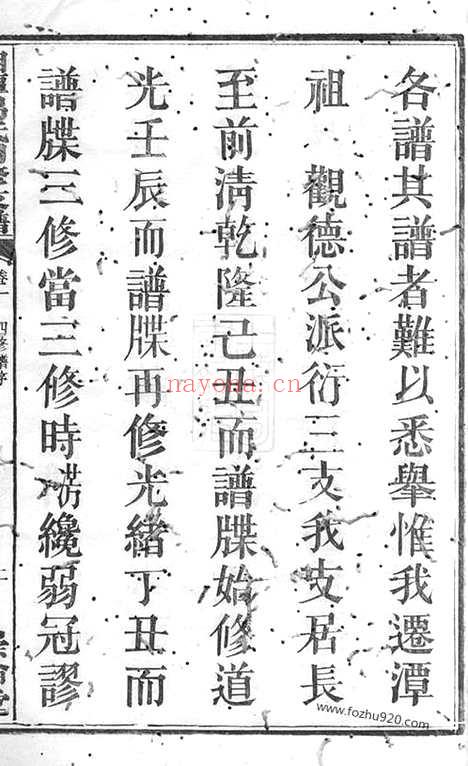 各譜其譜者難以悉舉惟我遷潭
祖　觀德公派衍三支我支居長
至前清乾隆己丑而譜牒始修道
光壬辰而譜牒再修光緒丁丑而
譜牒三修當三修時澇纔弱冠謬
卷一
四修譜序
nayona.cn
www.fozhu920.com